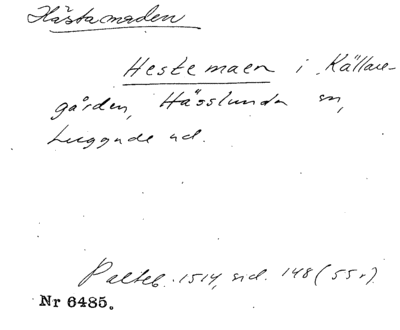 Hästamaden
Hestemaen i Källare-
gården, Hässlunda sn,
Luggude hd.
Palteb. 1514, sid. 148 (55r)
Nr 6485.